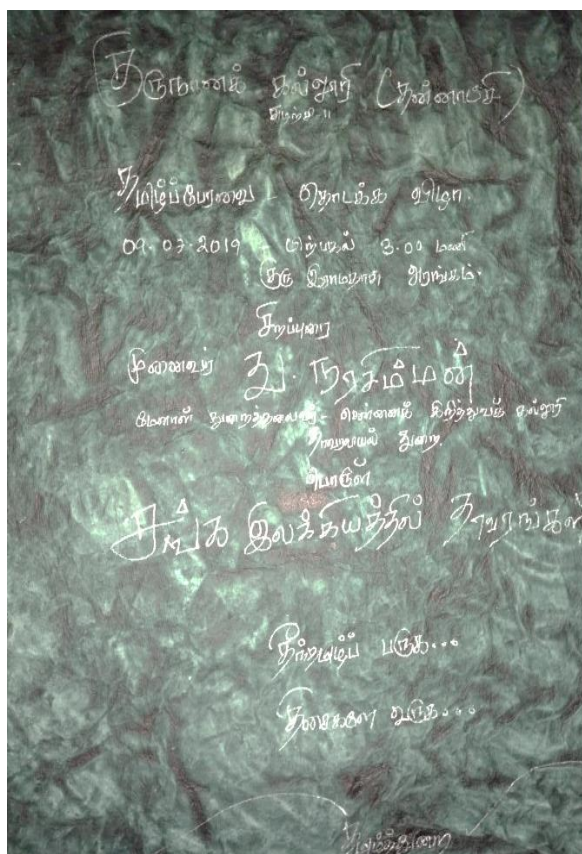 குருநானக் கல்லூரி (தன்னாட்சி)
சுழற்சி II
தமிழ்ப்பேரவை - தொடக்க விழா.
09.07.2019 பிற்பகல் 3.00 மணி
குரு இராமதாசு அரங்கம்.
சிறப்புரை
முனைவர் து. நரசிம்மன்
மேனாள் துறைத்தலைவர் - சென்னைக் கிறித்துவக் கல்லூரி
தாவரவியல் துறை.
பொருள்
சங்க இலக்கியத்தில் தாவரங்கள்
தீந்தமிழ்ப் பருக...
திசைகளை வருக...
தமிழ்த்துறை